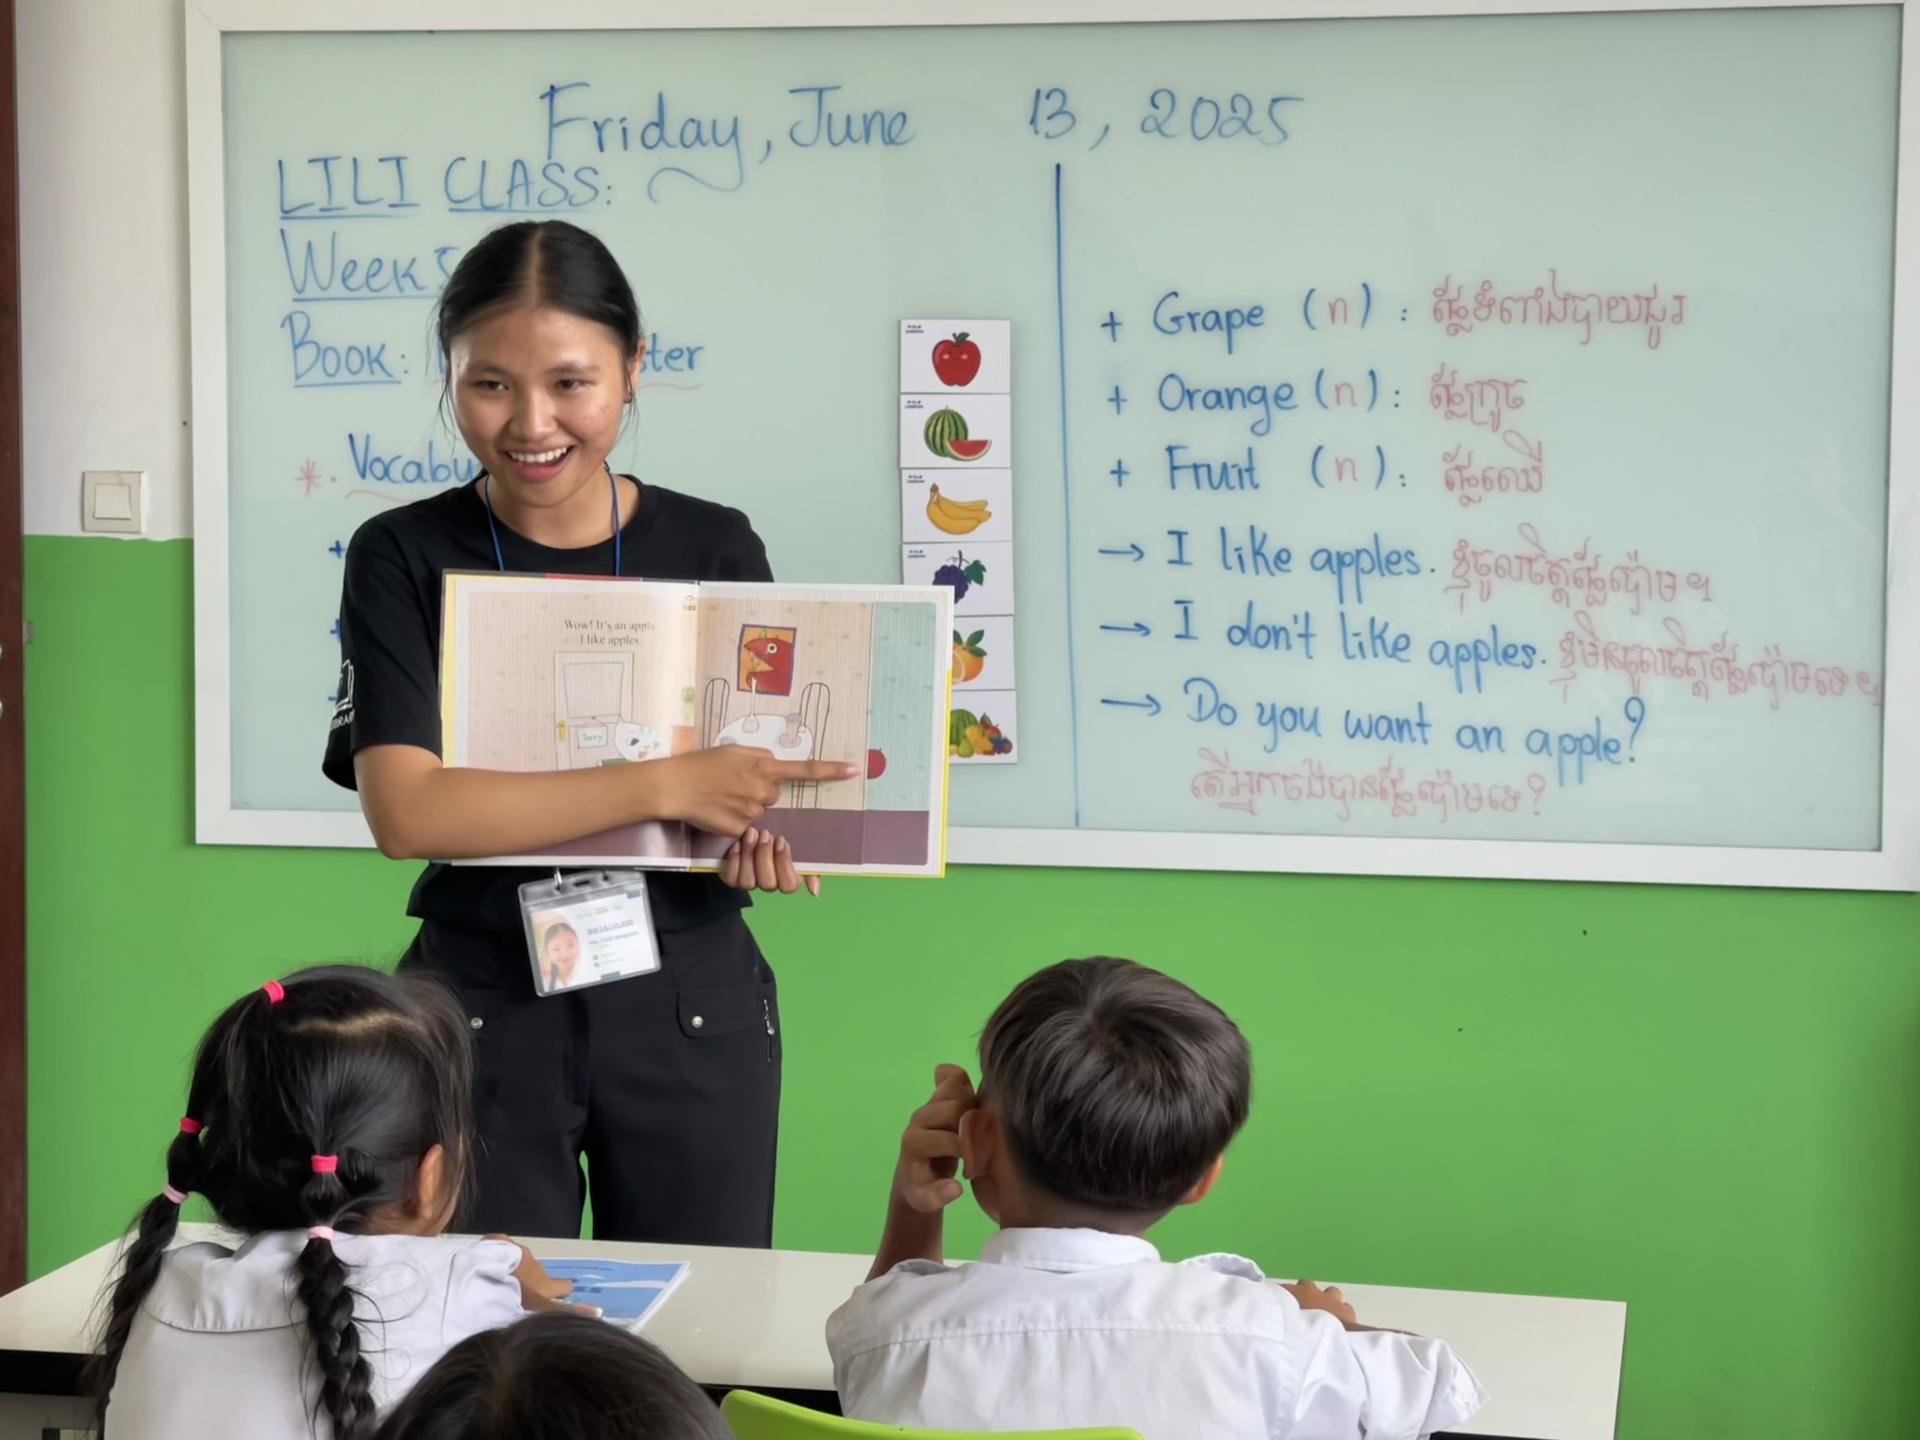 Friday, June 13, 2025
LILI CLASS:
Week 5
Book: ster
*. Vocabu
+ Grape (n) : ផ្លែទំពាំងបាយជូរ
+ Orange (n) : ផ្លែក្រូច
+ Fruit (n) : ផ្លែឈើ
→ I like apples. ខ្ញុំចូលចិត្តផ្លែប៉ោម។
→ I don't like apples. ខ្ញុំមិនចូលចិត្តផ្លែប៉ោមទេ។
→ Do you want an apple?
តើអ្នកចង់បានផ្លែប៉ោមទេ?
Wow! It's an apple
I like apples.
THE LILI CLASS